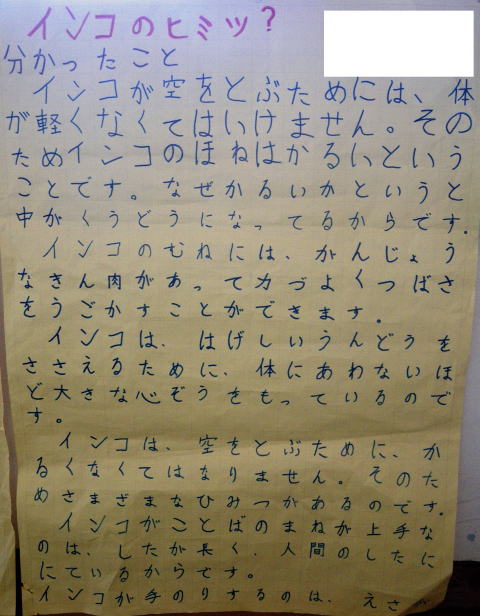 インコのヒミツ?
分かったこと
インコが空をとぶためには、体
が軽くなくてはいけません。その
ためインコのほねはかるいという
ことです。なぜかるいかというと
中がくうどうになってるからです.
インコのむねには、がんじょう
なきん肉があって力づよくつばさ
をうごかすことができます.
インコは、はげしいうんどうを
ささえるために、体にあわないほ
ど大きな心ぞうをもっているので
す。
インコは、空をとぶために、か
るくなくてはなりません。そのた
めさまざまなひみつがあるのです.
インコがことばのまねが上手な
のは、したが長く、人間のしたに
にているからです。
インコが手のりするのは、えさが